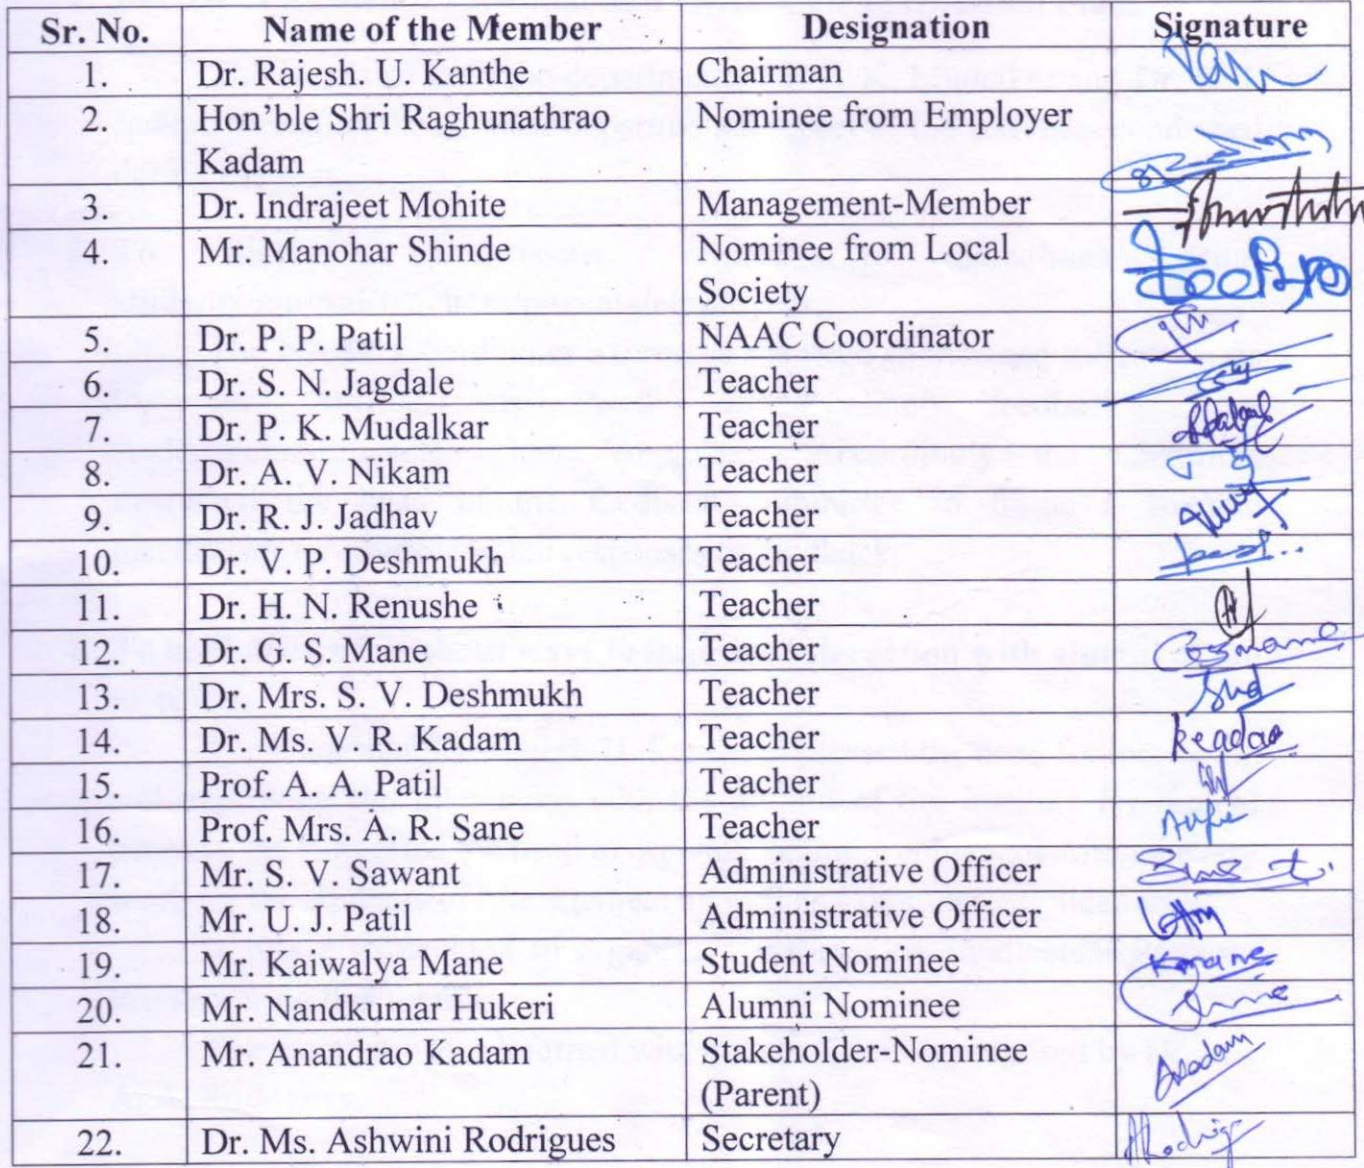 Sr. No. Name of the Member Designation Signature
1. Dr. Rajesh. U. Kanthe Chairman
2. Hon'ble Shri Raghunathrao Nominee from Employer
Kadam
3. Dr. Indrajeet Mohite Management-Member
4. Mr. Manohar Shinde Nominee from Local
Society
5. Dr. P. P. Patil NAAC Coordinator
6. Dr. S. N. Jagdale Teacher
7. Dr. P. K. Mudalkar Teacher
8. Dr. A. V. Nikam Teacher
9. Dr. R. J. Jadhav Teacher
10. Dr. V. P. Deshmukh Teacher
11. Dr. H. N. Renushe Teacher
12. Dr. G. S. Mane Teacher Gsmane
13. Dr. Mrs. S. V. Deshmukh Teacher
14. Dr. Ms. V. R. Kadam Teacher
15. Prof. A. A. Patil Teacher
16. Prof. Mrs. A. R. Sane Teacher
17. Mr. S. V. Sawant Administrative Officer
18. Mr. U. J. Patil Administrative Officer
19. Mr. Kaiwalya Mane Student Nominee Kmane
20. Mr. Nandkumar Hukeri Alumni Nominee
21. Mr. Anandrao Kadam Stakeholder-Nominee
(Parent)
22. Dr. Ms. Ashwini Rodrigues Secretary